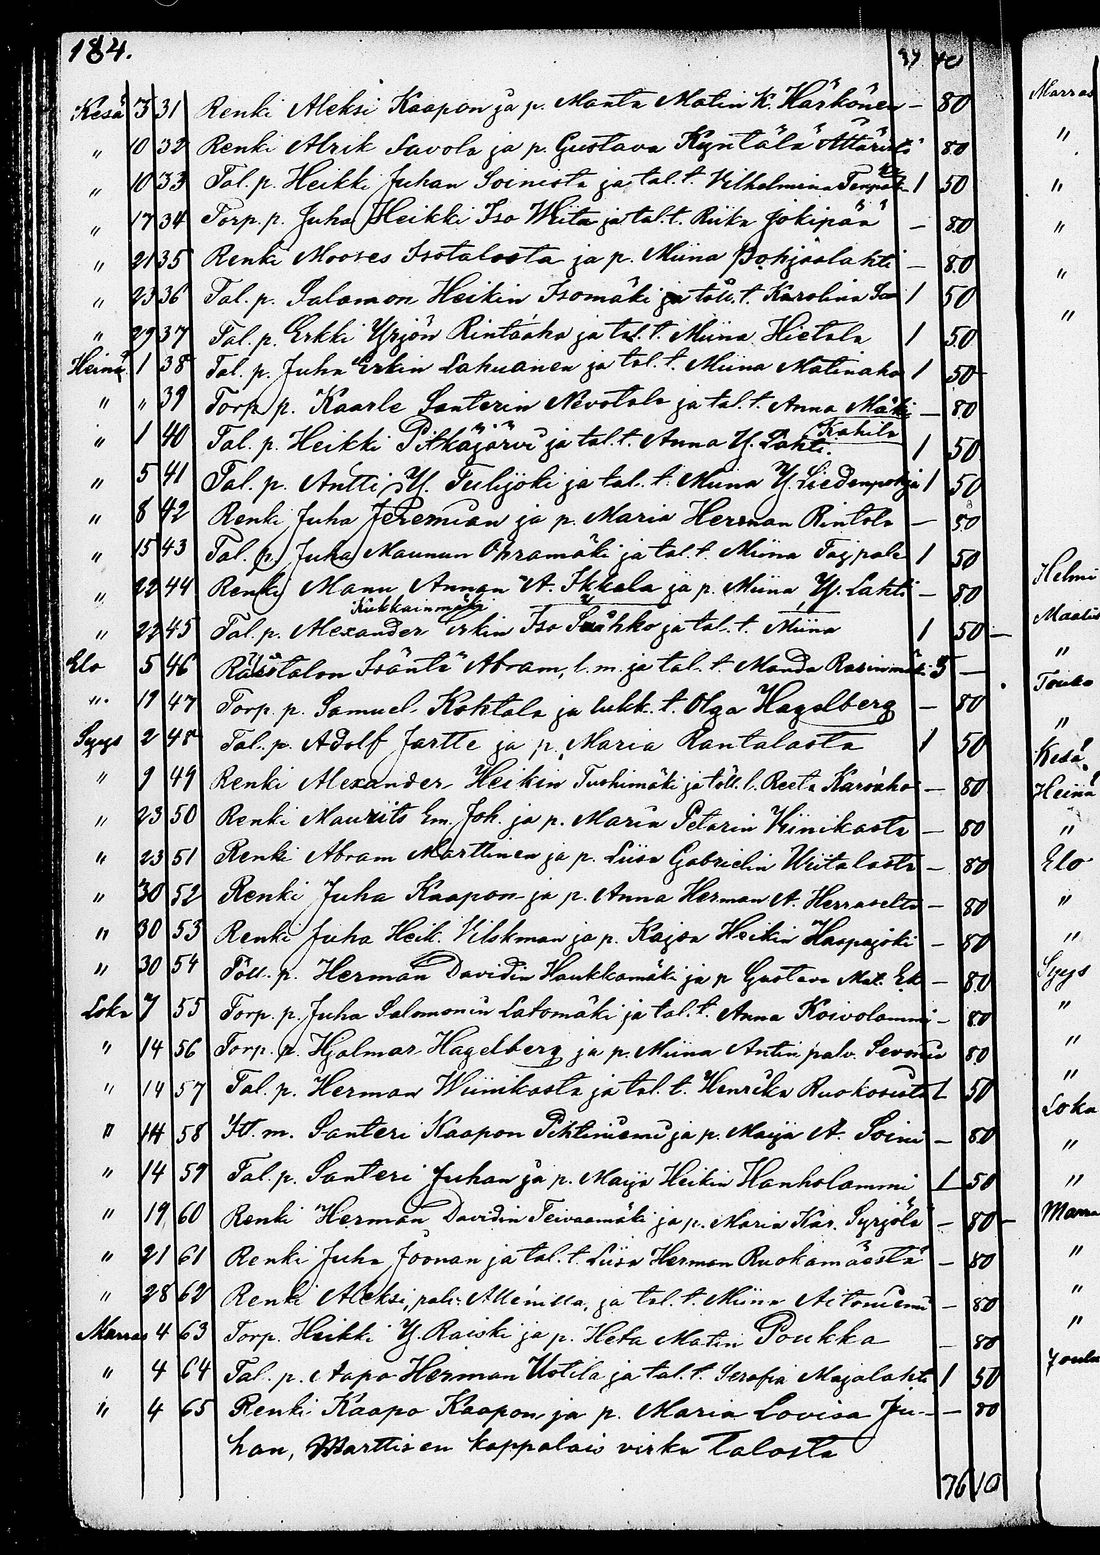 184.
Kesä 3 31 Renki Aleksi Kaapon ja p. Manta Matin K. Härkönen — 80
" 10 32 Renki Alrik Savola ja p. Gustava Kyntälä — 80
" 10 33 Tal. p. Heikki Juhan Soinista ja tal. t. Vilhelmina 1 50
" 17 34 Torp. p. Juha Heikki Iso ja tal. t. Riika Jokipää — 80
" 21 35 Renki Mooses Isotalosta ja p. Miina Pohjaslahti — 80
" 23 36 Tal. p. Salomon Heikin Isomäki ja t. Karolina 1 50
" 29 37 Tal. p. Erkki Yrjön Rintaaho ja tal. t. Miina Hietala 1 50
Heinä 1 38 Tal. p. Juha Erkin Lahnanen ja tal. t. Miina Matinaho 1 50
" " 39 Torp. p. Kaarle Santerin Nevatalo ja tal. t. Anna Mäki — 80
" 1 40 Tal. p. Heikki Pitkäjärvi ja tal. t. Anna Y. Lahti. Kohila 1 50
" 5 41 Tal. p. Antti Y. Tulijoki ja tal. t. Miina Y. Liedenpohja 1 50
" 8 42 Renki Juha Jeremian ja p. Maria Herman Rintala — 80
" 15 43 Tal. p. Juha Maunun Ohramäki ja tal. t. Miina Taipale 1 50
" 22 44 Renki Manu Annan A. Ikkala ja p. Miina Y. Lahti — 80
Kukkainmäki
" 22 45 Tal. p. Alexander Erkin Iso ja tal. t. Miina 1 50 —
Elo 5 46 Isäntä Abram, l. m. ja tal. t. Manda Rasinmäki 3 —
" 19 47 Torp. p. Samuel Kohtala ja lukk. t. Olga Hagelberg — 80
Syys 2 48 Tal. p. Adolf Jartte ja p. Maria Rantalasta 1 50
" 9 49 Renki Alexander Heikin Tuohimäki ja t. Reeta — 80
" 23 50 Renki Maurits Em. Joh. ja p. Maria Petarin Viinikasta — 80
" 23 51 Renki Abram Marttinen ja p. Liisa Gabrielin Uritalosta — 80
" 30 52 Renki Juha Kaapon ja p. Anna Herman A. Herraselta — 80
" 30 53 Renki Juha Heik. Vilskman ja p. Kajsa Heikin Haapajoki — 80
" 30 54 Töll. p. Herman Davidin Haukkamäki ja p Gustava Mat. — 80
Loka 7 55 Torp. p. Juha Salomonin Latomäki ja tal. t. Anna Koivolammi — 80
" 14 56 Torp. p. Hjalmar Hagelberg ja p. Miina Antin palv. 80
" 14 57 Tal. p. Herman Wiinikasta ja tal. t. Henrika 1 50
" 14 58 It. m. Santeri Kaapon Pihtiniemi ja p. Maija A. Soini — 80
" 14 59 Tal. p. Santeri Juhan ja p. Maija Heikin Hanholammi 1 50
" 19 60 Renki Herman Davidin Teivaamäki ja p. Maria Kar. Syrjälä — 80 —
" 21 61 Renki Juha Joonan ja tal. t. Liisa Herman Ruokamäestä — 80
" 28 62 Renki Aleksi, palv. ja tal. t. Miina — 80
Marras 4 63 Torp. Heikki Y. Raiski ja p. Heta Matin Poukka — 80
" 4 64 Tal. p. Aapo Herman Uotila ja tal. t. Serafia Majalahti 1 50
" 4 65 Renki Kaapo Kaapon ja p. Maria Lovisa Ju- — 80
han, Marttisen kappalais virka talosta
76 10
Marras
"
"
"
"
"
Helmi
Maalis
"
Touko
"
Kesä
Heinä
"
Elo
"
"
Syys
"
"
"
Loka
"
"
Marra
"
"
"
Joulu